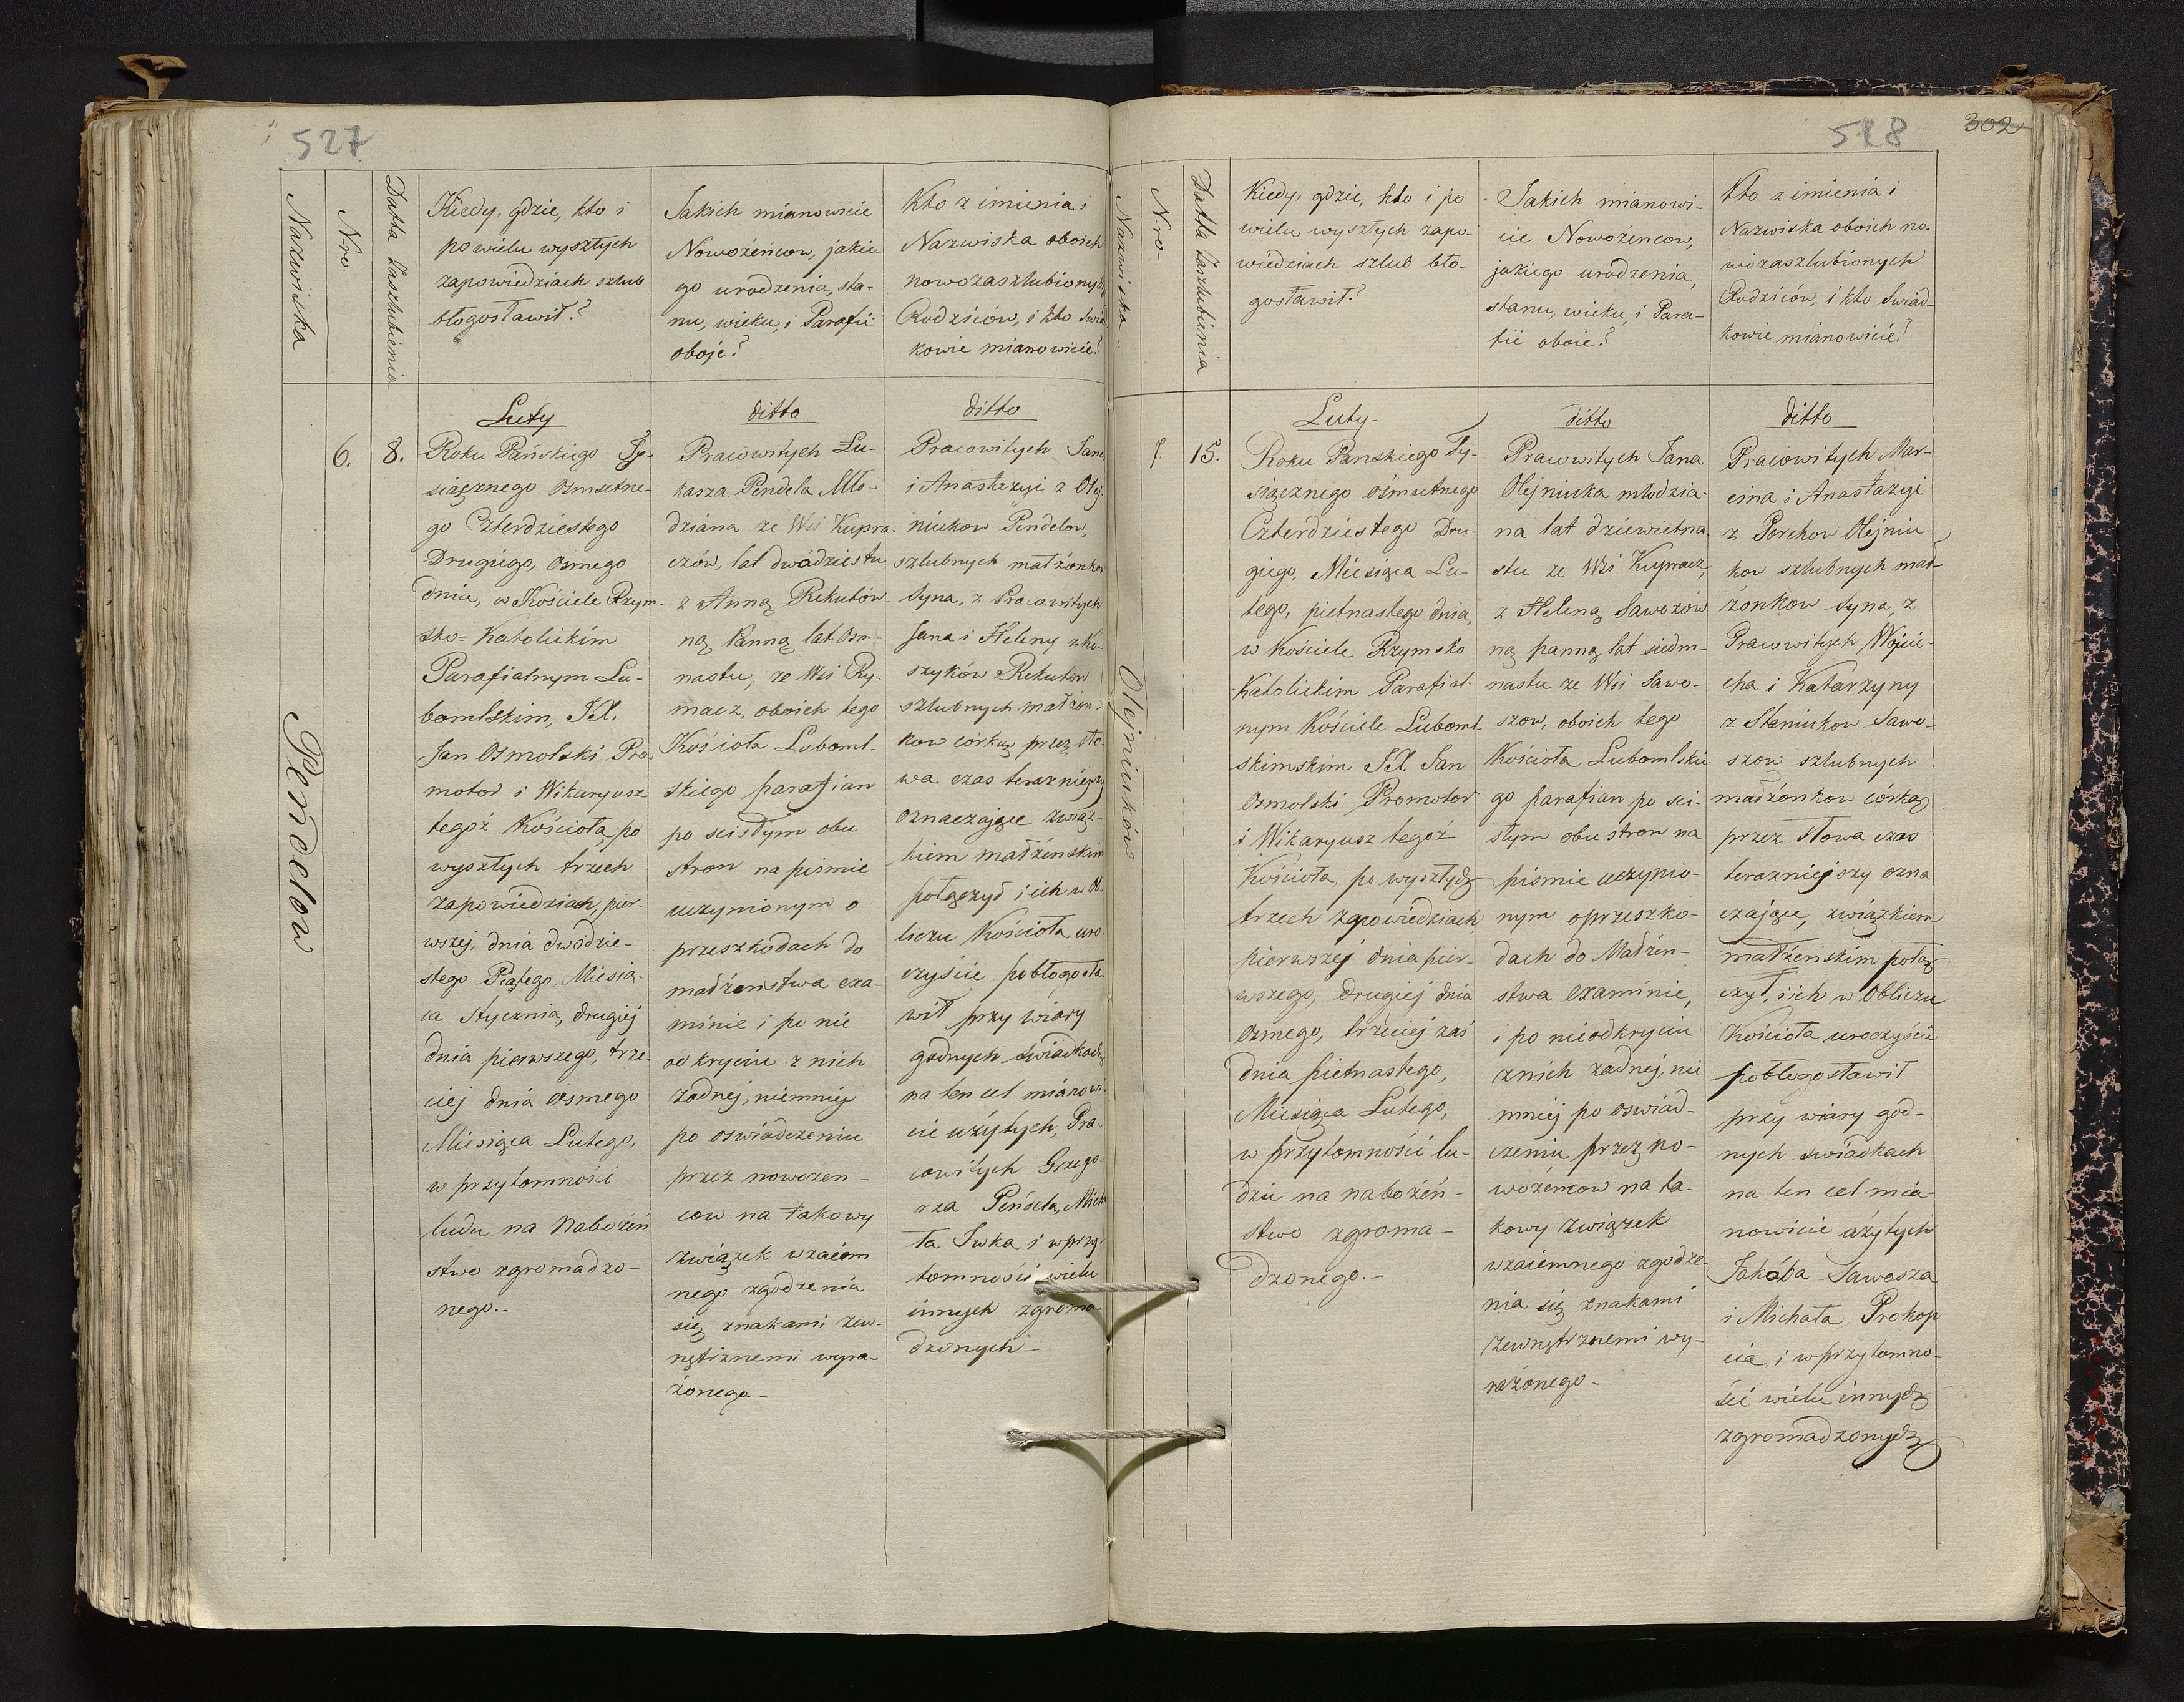 527
Nazwiska
Nro.
Datta Zaszlubienia
Kiedy, gdzie, kto i
po wielu wyszłych
zapowiedziach szlub
błogosławił?
Jakich mianowicie
Nowożeńcow, jakie-
go urodzenia, sta-
nu, wieku, i Parafii
oboje?
Kto z imienia i
Nazwiska oboich
nowozaszlubionych
Rodziców, i kto Świad
kowie mianowicie?
Pendelow
6.
8.
Luty
Roku Pańskiego Ty-
siącznego Osmsetne-
go Czterdziestego
Drugiego, osmego
dnia, w Kościele Rzym-
sko=Katolickim
Parafialnym Lu-
bomlskim, JX.
Jan Osmolski Pro-
motor i Wikaryusz
tegoż Kościoła, po
wyszłych trzech
zapowiedziach, pier-
wszej, dnia dwódzie-
stego Piątego, Miesią-
ca Stycznia, drugiej
dnia pierwszego, trze-
ciej dnia osmego
Miesiąca Lutego,
w przytomności
ludu na Nabożeń
stwo zgromadzo-
nego.-
ditto
Pracowitych Łu-
kasza Pendela Mło-
dziana ze Wsi Kupra-
czów, lat dwadziestu,
z Anną Rekutów-
ną Panną lat osm-
nastu, ze Wsi Ry-
macz, oboich tego
Kościoła Luboml-
skiego parafian
po scisłym obu
stron na pismie
uczynionym o
przeszkodach do
małżenstwa exa-
minie i po nie
odkryciu z nich
żadnej, niemniej
po oswiadczeniu
przez nowozen-
cow na takowy
związek wzaiem
nego zgodzenia
się znakami zew-
nętrznemi wyra-
żonego.-
ditto
Pracowitych Jana
i Anastazyi z Olej-
niukow Pendelow,
szlubnych małżonkow
syna, z Pracowitych
Jana i Heleny z Ko-
szyków Rekutow
szlubnych małżon-
kow córką, przez sło-
wa czas teraznieyszy
oznaczające związ-
kiem małżenskim
połączył i ich w Ob-
liczu Kościoła uro-
czyście pobłogosła-
wił przy wiary
godnych swiadkach
na ten cel mianowi
cie użytych, Pra-
cowitych Grzego
rza Pendela, Micha
ła Iwka i w przy-
tomności wielu
innych zgroma-
dzonych-
528
302
Nazwiska
Nro.
Datta Zaszlubienia
Kiedy, gdzie, kto i po
wielu wyszłych zapo-
wiedziach szlub bło-
gosławił?
Jakich mianowi-
cie Nowożencow,
jakiego urodzenia,
stanu, wieku, i Para-
fii oboie?
Kto z imienia i
Nazwiska oboich no-
wozaszlubionych
Rodziców, i kto Swiad-
kowie mianowicie?
Olejniuków
7.
15.
Luty-
Roku Panskiego Ty-
siącznego ośmsetnego
Czterdziestego Dru-
giego, Miesiąca Lu-
tego, pietnastego dnia,
w Kościele Rzymsko
Katolickim Parafial-
nym Kościele Luboml-
skimskim JX. Jan
Osmolski Promotor
i Wikaryusz tegoż
Kościoła, po wyszłych
trzech zapowiedziach,
pierwszej dnia pier-
wszego, drugiej dnia
osmego, trzeciej zaś
dnia pietnastego,
Miesiąca Lutego,
w przytomności lu-
dzu na nabożeń-
stwo zgroma-
dzonego.-
ditto
Pracowitych Jana
Olejniuka młodzia-
na lat dziewietna-
stu ze Wsi Kupracz,
z Heleną Sawozów
ną panną lat siedm-
nastu ze Wsi Sawo-
szow, oboich tego
Kościoła Lubomlskie
go parafian po sci-
słym obu stron na
pismie uczynio-
nym oprzeszko-
dach do Małżen-
stwa examinie,
i po nieodkryciu
znich żadnej, nie
mniej po oswiad-
czeniu przez no-
wożencow na ta-
kowy związek
wzaiemnego zgodze-
nia się znakami
zewnętrznemi wy-
rażonego-
ditto
Pracowitych Mar-
cina i Anastazyi
z Porchow Olejniu-
kow szlubnych mał-
żonkow syna, z
Pracowitych Wojcie-
cha i Katarzyny
z Staniukow Sawo-
szow szlubnych
małżonkow córką,
przez słowa czas
terazniejszy ozna
czające, związkiem
małżenskim połą
czył, i ich w Obliczu
Kościoła uroczyście
pobłogosławił
przy wiary god-
nych swiadkach
na ten cel mia-
nowicie użytych
Jakóba Sawosza
i Michała Prokop
cia, i w przytomno-
ści wielu innych
zgromadzonych